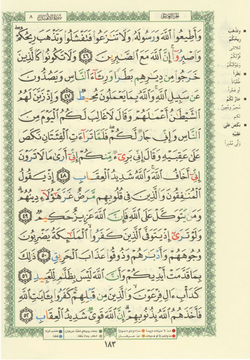 وَأَطِيعُوا۟ ٱللَّهَ وَرَسُولَهُۥ وَلَا تَنَـٰزَعُوا۟ فَتَفْشَلُوا۟ وَتَذْهَبَ رِيحُكُمْ
وَٱصْبِرُوٓا۟ إِنَّ ٱللَّهَ مَعَ ٱلصَّـٰبِرِينَ ٤٦ وَلَا تَكُونُوا۟ كَٱلَّذِينَ
خَرَجُوا۟ مِن دِيَـٰرِهِم بَطَرًا وَرِئَآءَ ٱلنَّاسِ وَيَصُدُّونَ
عَن سَبِيلِ ٱللَّهِ وَٱللَّهُ بِمَا يَعْمَلُونَ مُحِيطٌ ٤٧ وَإِذْ زَيَّنَ لَهُمُ
ٱلشَّيْطَـٰنُ أَعْمَـٰلَهُمْ وَقَالَ لَا غَالِبَ لَكُمُ ٱلْيَوْمَ مِنَ
ٱلنَّاسِ وَإِنِّى جَارٌ لَّكُمْ فَلَمَّا تَرَآءَتِ ٱلْفِئَتَانِ نَكَصَ
عَلَىٰ عَقِبَيْهِ وَقَالَ إِنِّى بَرِىٓءٌ مِّنكُمْ إِنِّىٓ أَرَىٰ مَا لَا تَرَوْنَ
إِنِّىٓ أَخَافُ ٱللَّهَ وَٱللَّهُ شَدِيدُ ٱلْعِقَابِ ٤٨ إِذْ يَقُولُ
ٱلْمُنَـٰفِقُونَ وَٱلَّذِينَ فِى قُلُوبِهِم مَّرَضٌ غَرَّ هَـٰٓؤُلَآءِ دِينُهُمْ
وَمَن يَتَوَكَّلْ عَلَى ٱللَّهِ فَإِنَّ ٱللَّهَ عَزِيزٌ حَكِيمٌ ٤٩
وَلَوْ تَرَىٰٓ إِذْ يَتَوَفَّى ٱلَّذِينَ كَفَرُوا۟ ٱلْمَلَـٰٓئِكَةُ يَضْرِبُونَ
وُجُوهَهُمْ وَأَدْبَـٰرَهُمْ وَذُوقُوا۟ عَذَابَ ٱلْحَرِيقِ ٥٠ ذَٰلِكَ
بِمَا قَدَّمَتْ أَيْدِيكُمْ وَأَنَّ ٱللَّهَ لَيْسَ بِظَلَّـٰمٍ لِّلْعَبِيدِ ٥١
كَدَأْبِ ءَالِ فِرْعَوْنَ وَٱلَّذِينَ مِن قَبْلِهِمْ كَفَرُوا۟ بِـَٔايَـٰتِ ٱللَّهِ
فَأَخَذَهُمُ ٱللَّهُ بِذُنُوبِهِمْ إِنَّ ٱللَّهَ قَوِىٌّ شَدِيدُ ٱلْعِقَابِ ٥٢
١٨٣